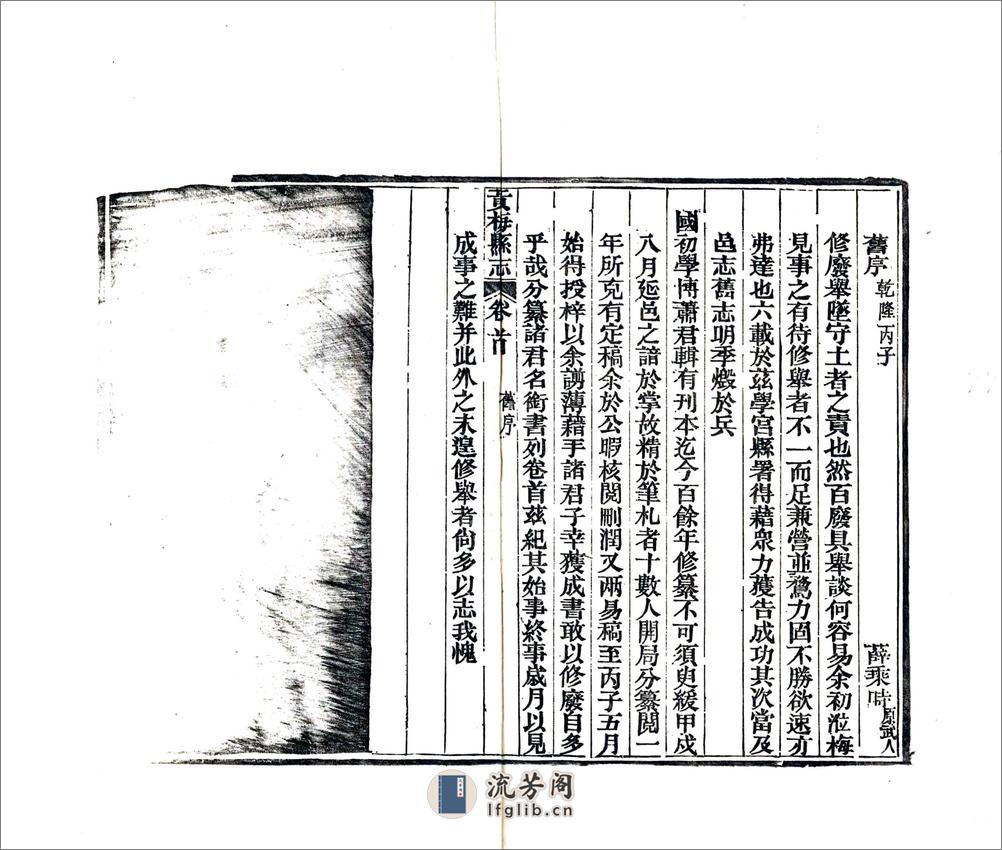 舊序乾隆丙子 薛乘時原武人
修廢舉墜守土者之責也然百廢具舉談何容易余初涖梅
見事之有待修舉者不一而足兼營並騖力固不勝欲速才
弗達也六載於茲學宮縣署得藉衆力獲告成功其次當及
邑志舊志明季燬於兵
國初學博蕭君輯有刊本迄今百餘年修纂不可須臾緩甲戌
八月延邑之諳於掌故精於筆札者十數人開局分纂閱一
年所克有定稿余於公暇核閱刪潤又兩易稿至丙子五月
始得授梓以余謭薄藉手諸君子幸獲成書敢以修廢自多
乎哉分纂諸君名銜書列卷首茲紀其始事終事歲月以見
黃梅縣志 卷首 舊序
成事之難并此外之未遑修舉者尚多以志我愧
流芳阁
lfglib.cn